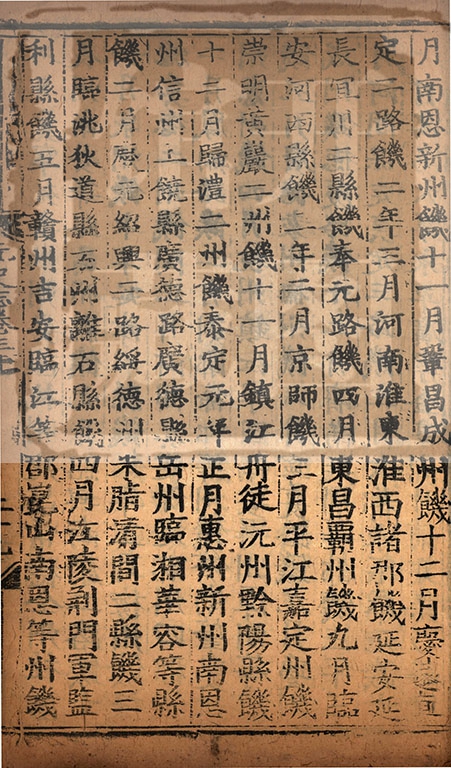 月南恩新州饑十一月鞏昌成州饑十二月慶
定二路饑二年三月河南淮東淮西諸郡饑延安延
長宜川二縣饑奉元路饑四月東昌霸州饑九月臨
安河西縣饑二年二月京師饑三月平江嘉定州饑
崇明黃巖二州饑十一月鎮江丹徒沅州黔陽縣饑
十二月歸澧二州饑泰定元年正月惠州新州南恩
州信州上饒縣廣德路廣德縣岳州臨湘華容等縣
饑二月慶元紹興二路綏德州米脂清澗二縣饑三
月臨洮狄道縣石州離石縣饑四月江陵荊門軍監
利縣饑五月贛州吉安臨江等郡崑山南恩等州饑